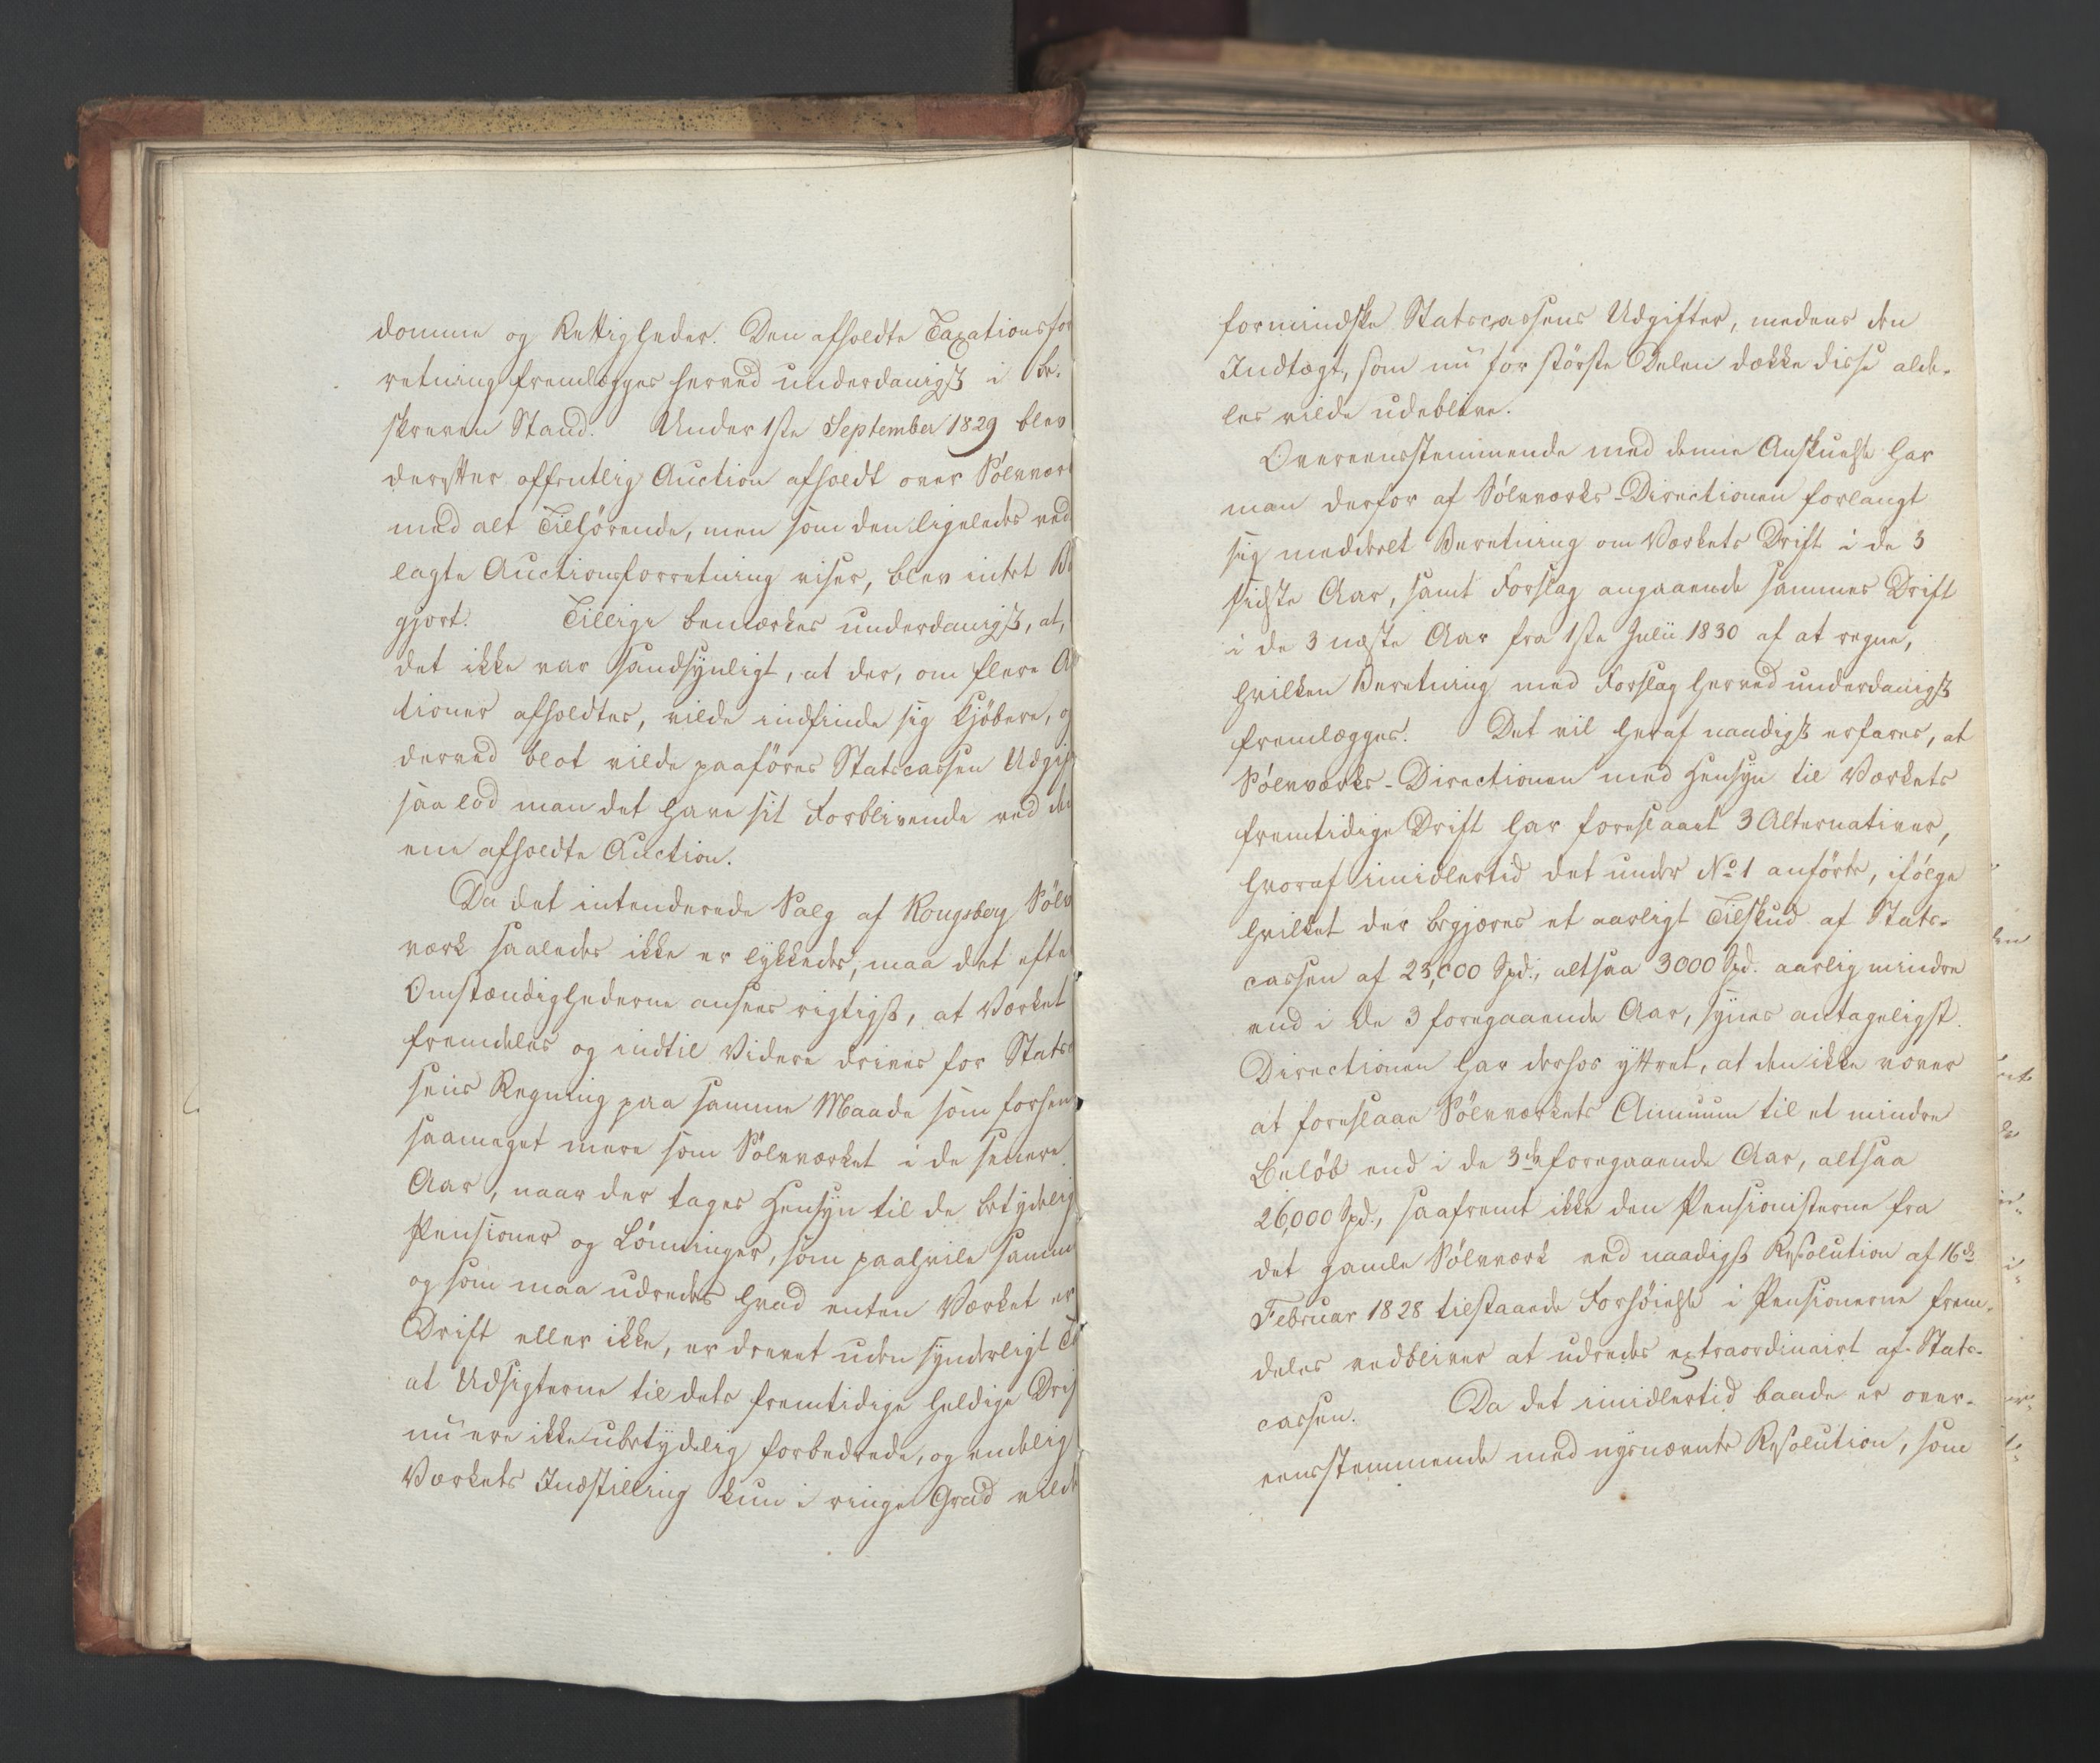 domme og Rettigheder. Den afholdte Taxationsfor
retning fremlægges herved underdanigst i be-
skreven Stand. Under 1ste September 1829 blev
derefter offentlig Auction afholdt over Sölvværk
med alt Tilhörende, men som den ligeledes ved
lagte Auctionsforretning viser, blev intet B
gjort. Tillige bemærkes underdanigst, at,
det ikke var sandsynligt, at der, om flere A
tioner afholdtes, vilde indfinde sig Kjöbere, og
derved blot vilde paaföres Statscassen Udgif
saa lod man det have sit Forblivende ved den
ene afholdte Auction.
Da det intenderede Salg af Kongsberg Sölv
værk saaledes ikke er lykkedes, maa det efte
Omstændighederne ansees rigtigst, at Værket
fremdeles og indtil Videre drives for Stats
sens Regning paa samme Maade som forhen
saameget mere som Sölvværket i de senere
Aar, naar der tages Hensyn til de betydelig
Pensioner og Lönninger, som paahvile samm
og som maa udredes hvad enten Værket er
Drift eller ikke, er drevet uden synderligt T
at Udsigterne til dets fremtidige heldige Drif
nu ere ikke ubetydelig forbedrede, og endelig
Værkets Indstilling kun i ringe Grad vilde
formindske Statscassens Udgifter, medens den
Indtægt, som nu for störste Delen dække disse alde-
les vilde udeblive.
Overeensstemmende med denne Anskuelse har
man derfor af Sölvværks-Directionen forlangt
sig meddeelt Beretning om Værkets Drift i de 3
sidste Aar, samt Forslag angaaende sammes Drift
i de 3 næste Aar fra 1ste Julii 1830 af at regne,
hvilken Beretning med Forslag herved underdanigst
fremlægges. Det vil heraf naadigst erfares, at
Sölvværks-Directionen med Hensyn til Værkets
fremtidige Drift har foreslaaet 3 Alternativer,
hvoraf imidlertid det under No 1 anförte, ifölge
hvilket der begjæres et aarligt Tilskud af Stats-
cassen af 23,000 Spd., altsaa 3000 Spd. aarlig mindre
end i de 3 foregaaende Aar, synes antageligst.
Directionen har derhos yttret, at den ikke vover
at foreslaae Sölvværkets Annuum til et mindre
Belöb end i de 3de foregaaende Aar, altsaa
26,000 Spd., saafremt ikke den Pensionisterne fra
det gamle Sölvværk ved naadigst Resolution af 16de
Februar 1828 tilstaaede Forhöielse i Pensionerne frem-
deles vedbliver at udredes extraordinairt af Stats-
cassen. Da det imidlertid baade er over-
eensstemmende med nysnævnte Resolution, som